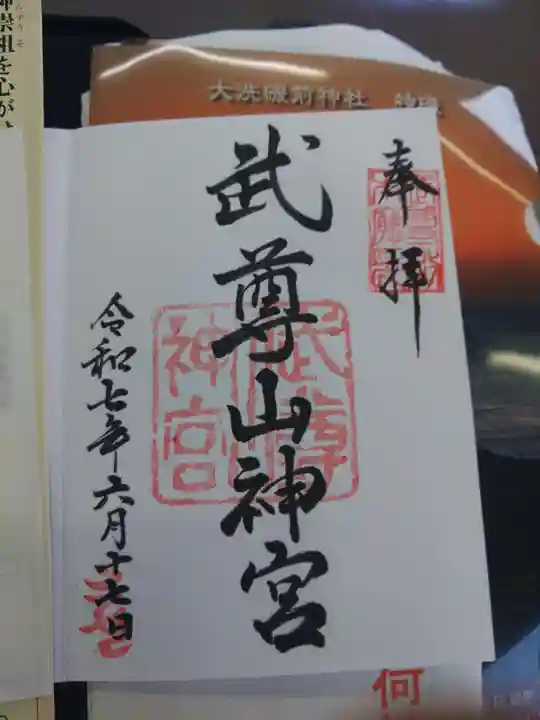 大洗磯前神社
奉拝
武尊山神宮
武尊
神宮
令和七年六月十七日
神崇祖を心が
何